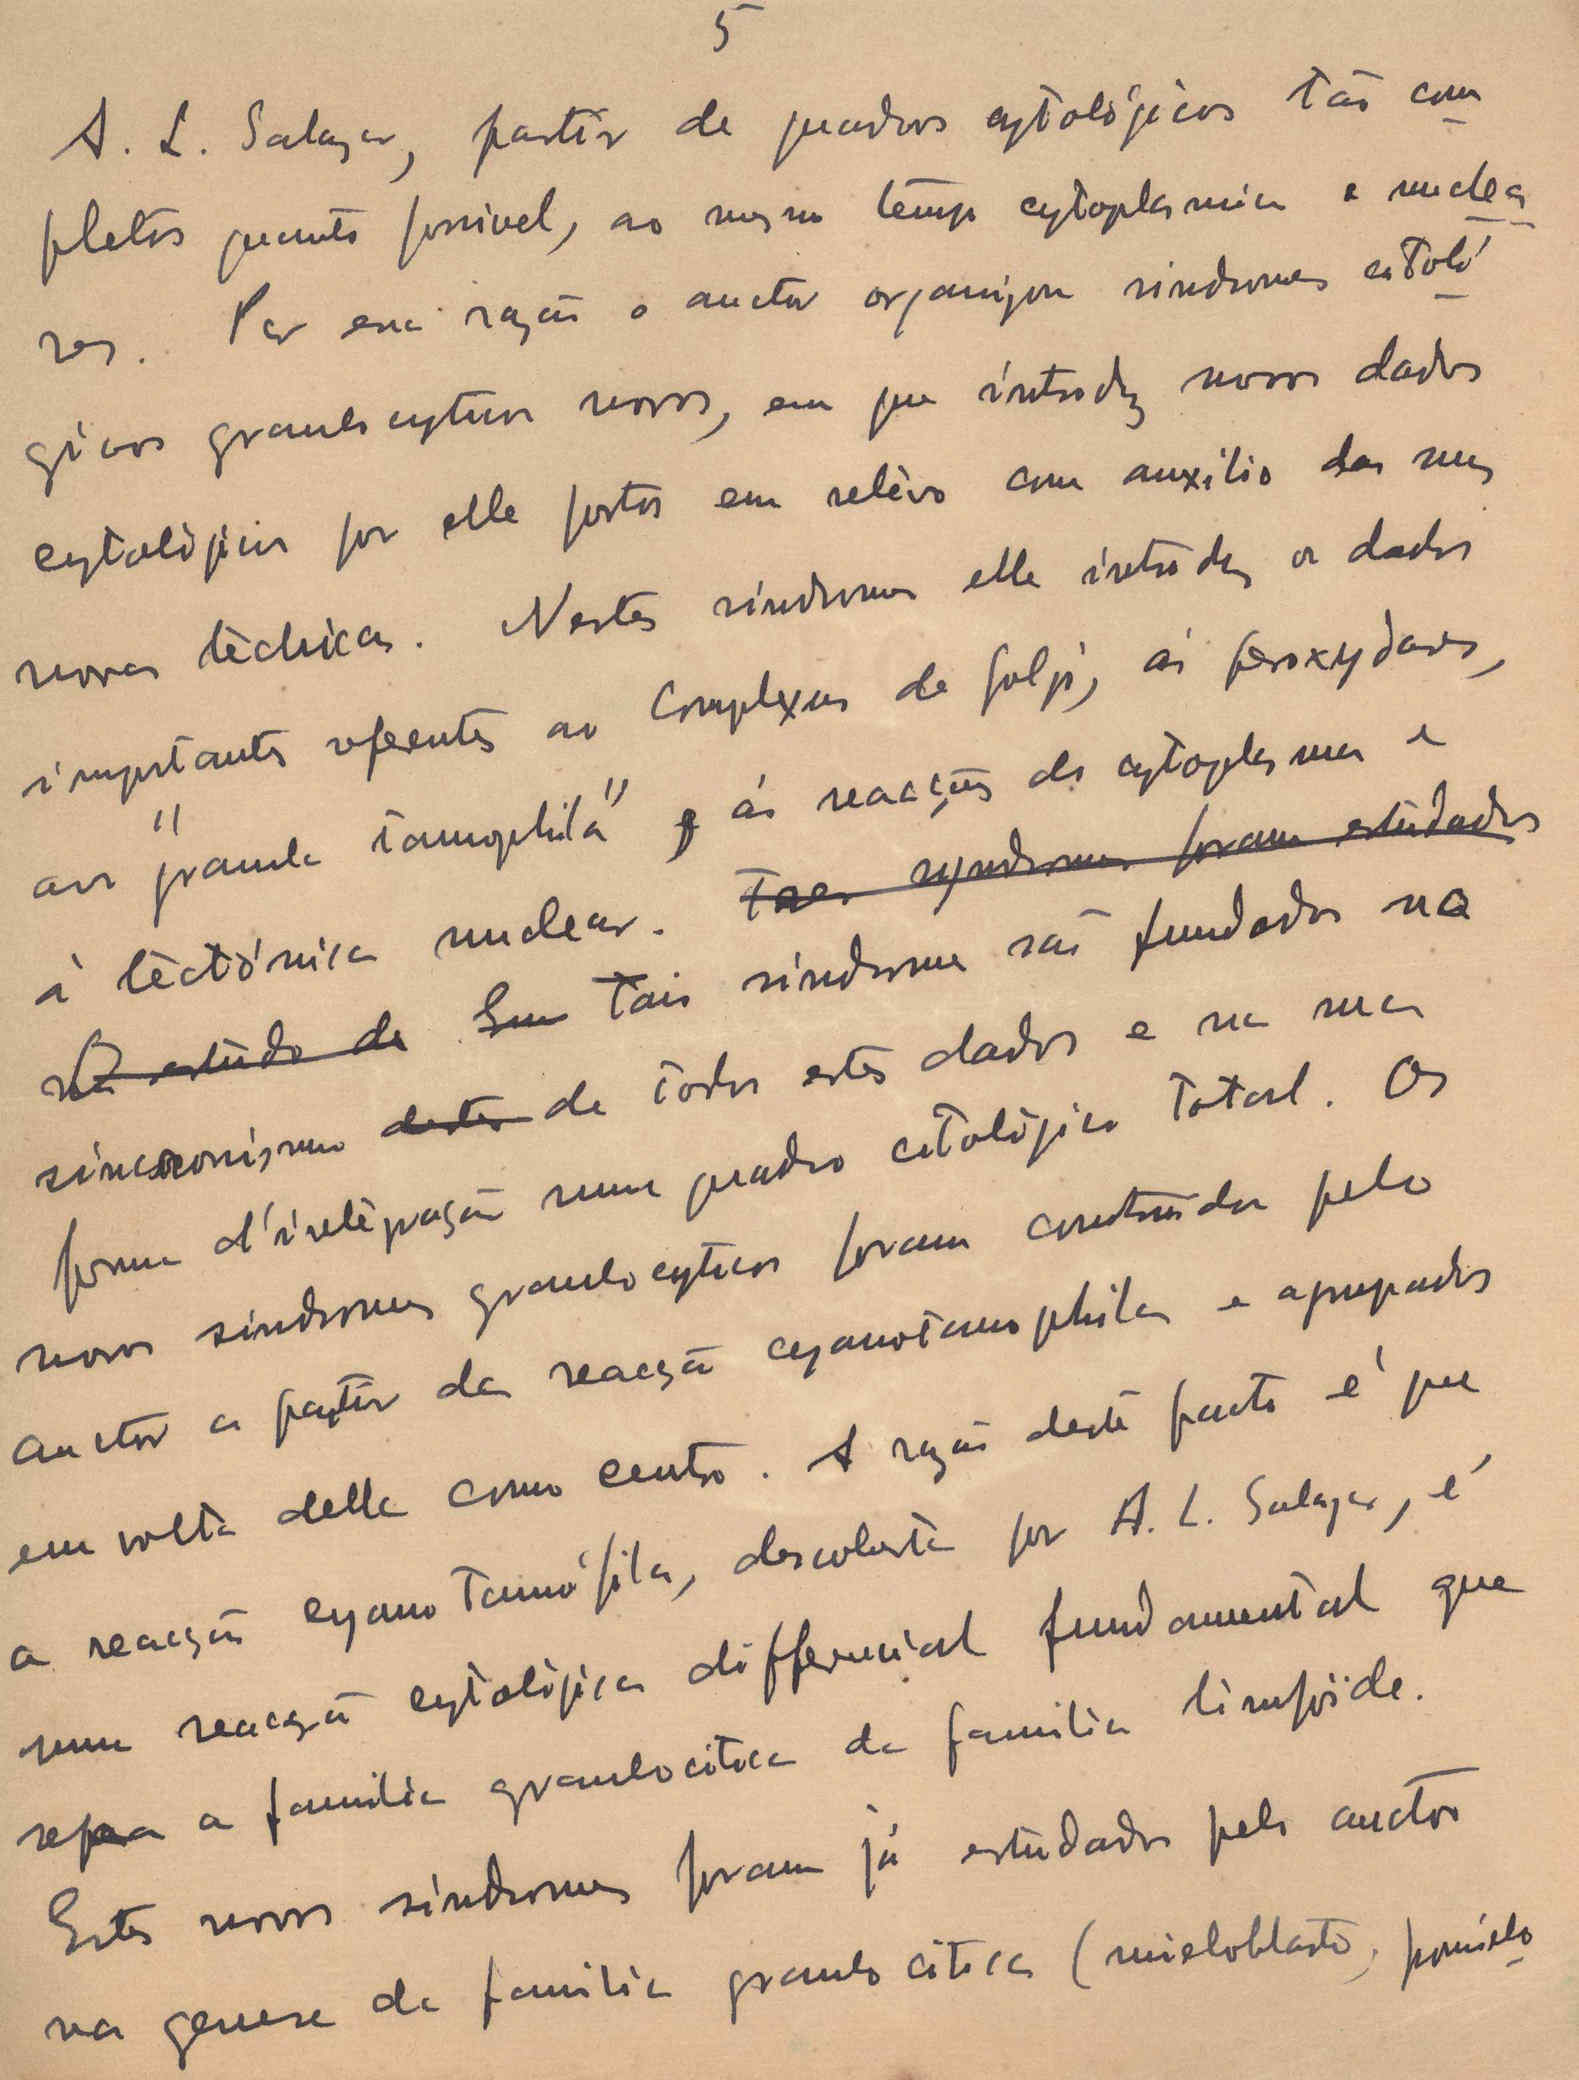 5
A. L. Salazar, partir de quadros cytológicos tão com
pletos quanto possivel, ao mesmo tempo cytoplasmica e nuclea
res. Por essa razão o auctor organizou sindromes citoló
gicos granulocyticos novos, em que introduz novos dados
cytológicos por elle postos em relêvo com auxilio das suas
novas téchnicas. Nestes sindromes elle introduz os dados
importantes referentes ao Complexus de Golgi, ás peroxydases,
aos "granula tannophila" e ás reacções do cytoplasma e
á tectónica nuclear. Taes syndromes foram estudados
No estudo de Em Tais sindromes são fundados no
sincronismo destes de todos estes dados e na sua
forma d'integração num quadro citológico total. Os
novos sindromes granulocyticos foram construidos pelo
auctor a partir da reacção cyanotannophila e agrupados
em volta della como centro. A razão deste facto é que
a reacção cyanotannófila, descoberta por A. L. Salazar, é
uma reacção cytológica differencial fundamental que
separa a familia granulocitica da familia linfoïde.
Estes novos sindromes foram já estudados pelo auctor
na genese da familia granulocitica (mieloblasto, promielo